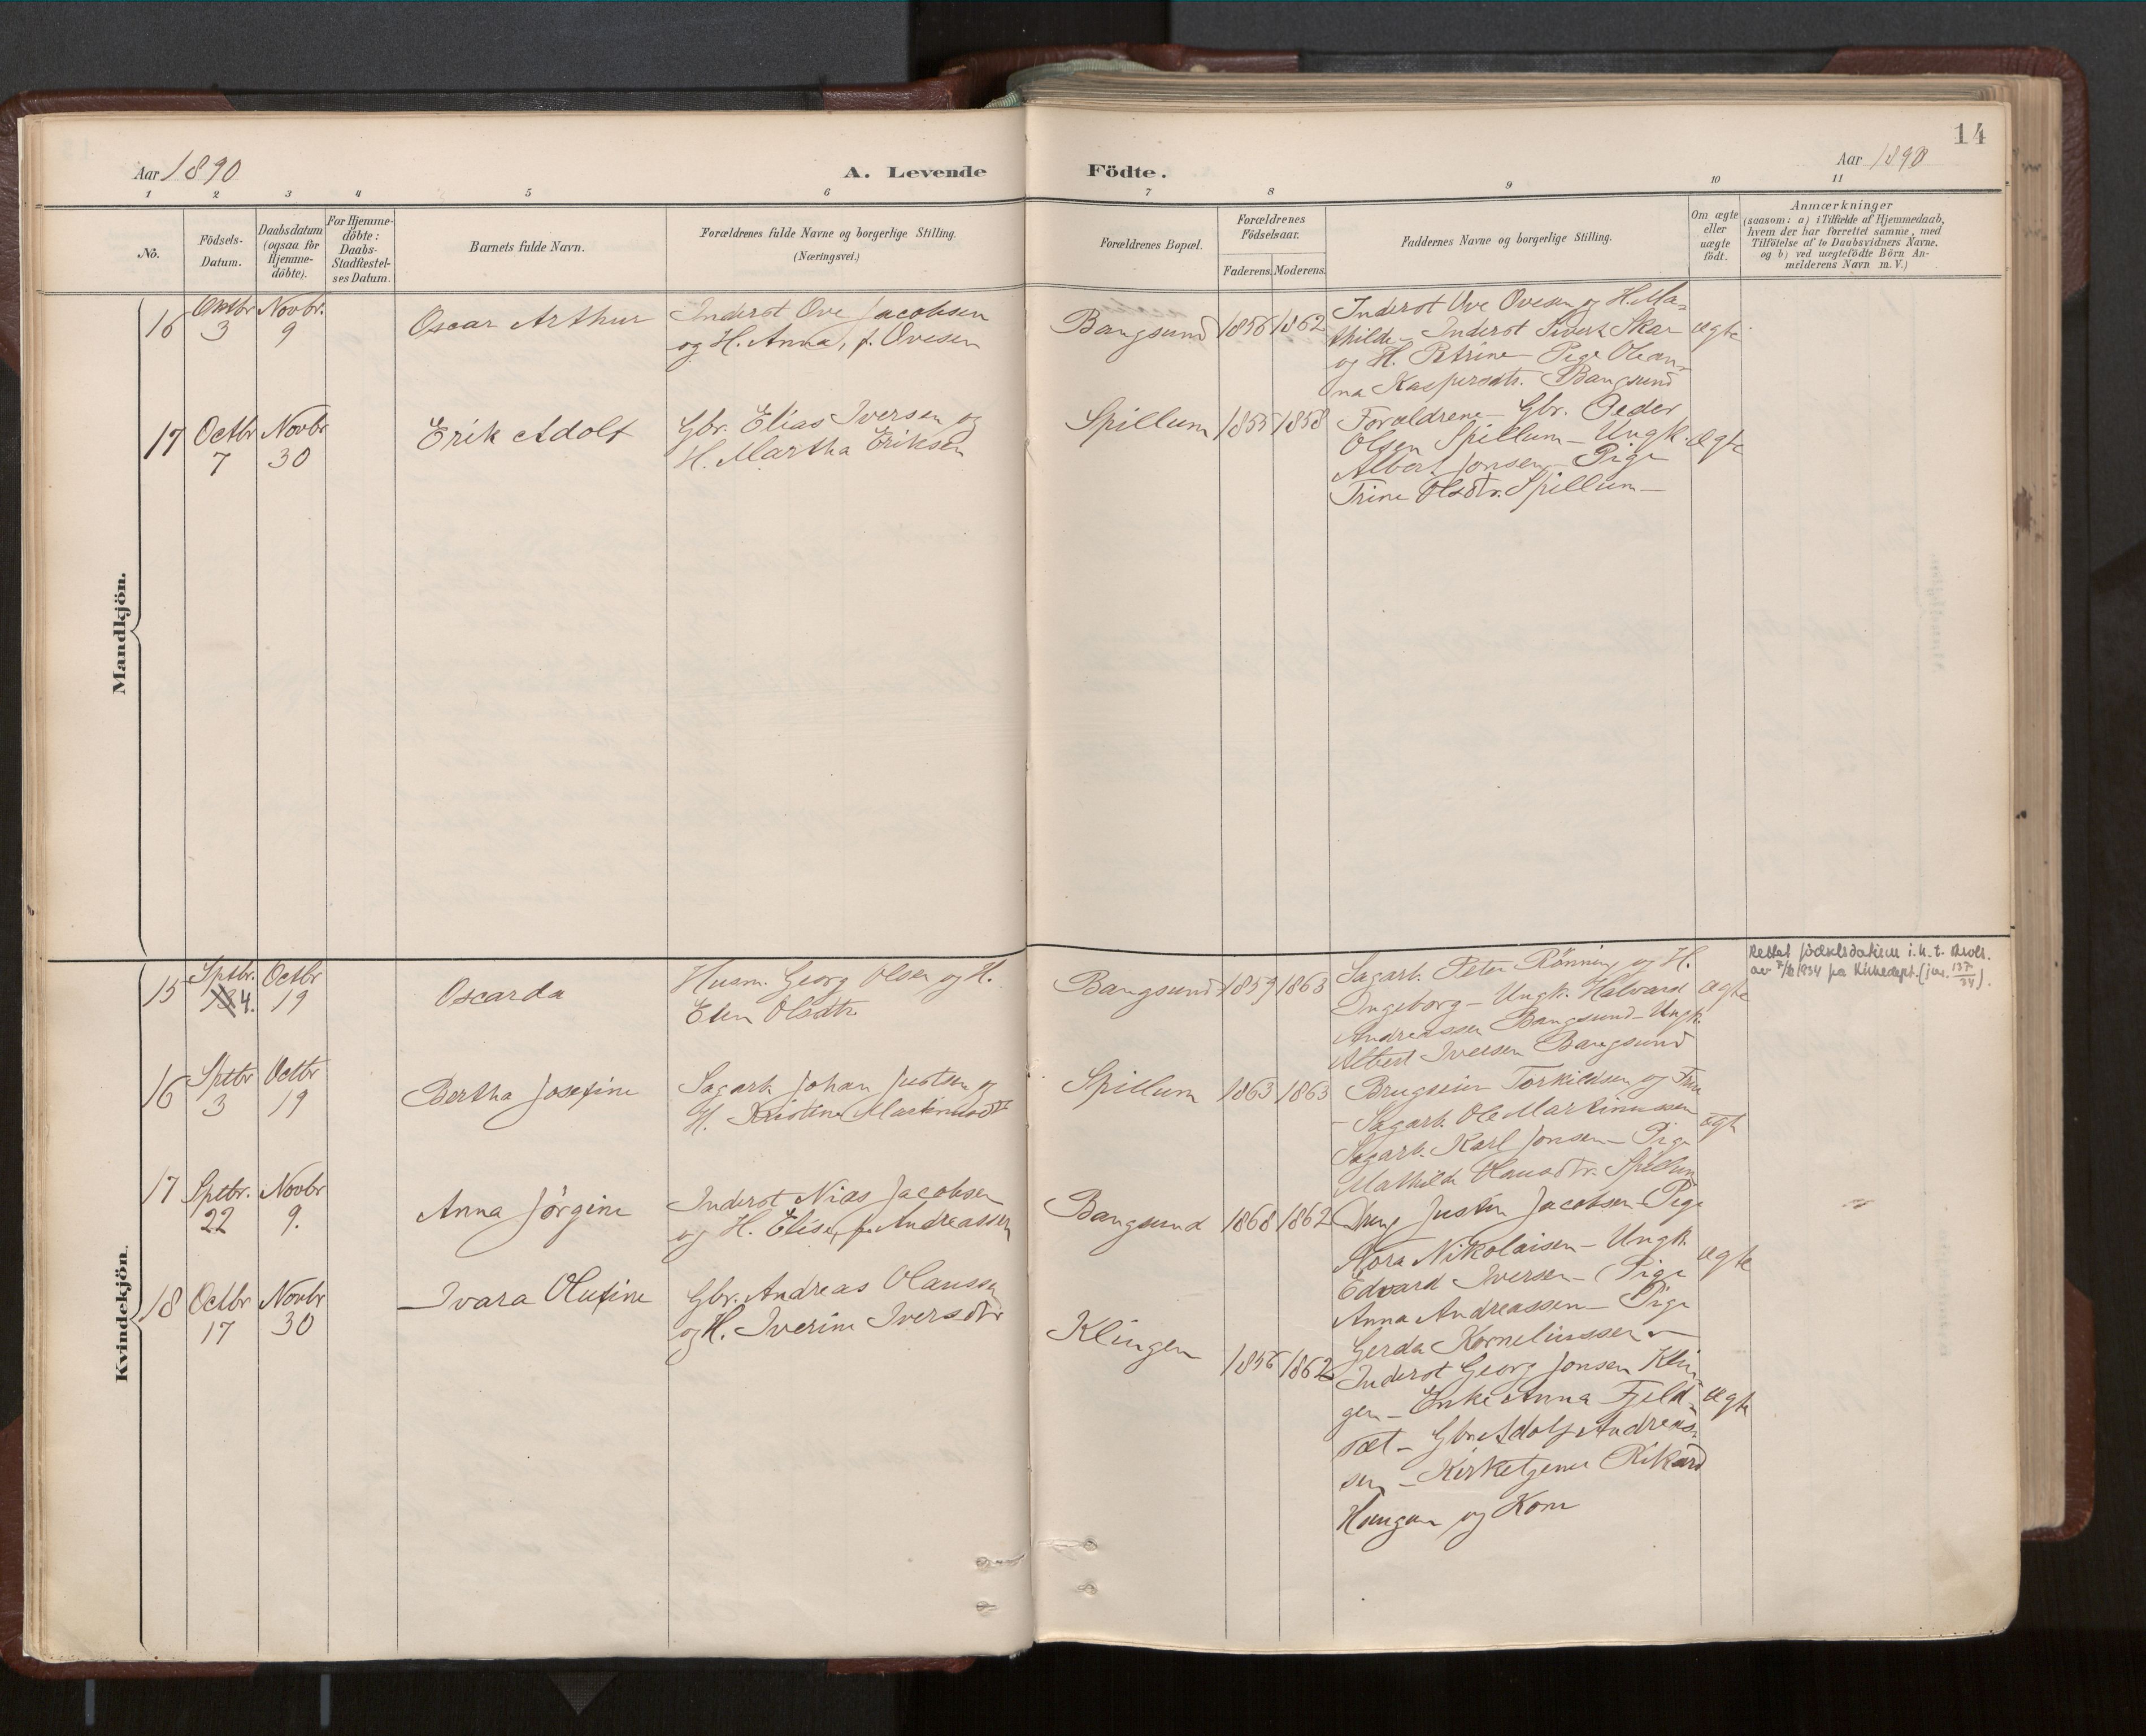 14
Aar 1890
A. Levende Födte.
Aar 1890
1 2 3 4 5 6 7 8 9 10 11
No.
Födsels-
Datum.
Daabsdatum
(ogsaa for
Hjemme-
döbte).
For Hjemme-
döbte:
Daabs-
Stadfæstel-
ses Datum.
Barnets fulde Navn.
Forældrenes fulde Navne og borgerlige Stilling.
(Næringsvei.)
Forældrenes Bopæl.
Forældrenes
Födselsaar.
Faderens. Moderens.
Faddernes Navne og borgerlige Stilling.
Om ægte
eller
uægte
födt.
Anmærkninger
(saasom: a) i Tilfælde af Hjemmedaab,
hvem der har forrettet samme, med
Tilföielse af to Daabsvidners Navne.
og b) ved uægtefödte Börn An-
melderens Navn m. V.)
Mandkjön.
16
Oktbr
3
Novbr.
9
Oscar Arthur
Inderst Ove Jacobsen
og H. Anna, f. Ovesen
Bangsund
1856
1862
Inderst Ove Ovesen og H. Ma-
thilde - Inderst Sivert Skar
og H. Petrine - Pige Olean-
na Kaspersdtr. Bangsund
ægte
17
Octbr
7
Novbr
30
Erik Adolf
Gbr. Elias Iversen og
H. Martha Eriksen
Spillum
1855
1858
Forældrene - Gbr. Peder
Olsen Spillum - Ungk.
Albert Jonsen - Pige
Trine Olsdtr. Spillum -
ægte
Kvindekjön.
15
Sptbr.
4.
Octbr
19
Oscarda
Husm. Georg Olsen og H.
Elen Olsdtr
Bangsund
1859
1863
Sagarb. Peter Rönning og H.
Ingeborg - Ungk. Halvard
Andreassen Bangsund - Ungk.
Albert Iversen Bangsund
ægte
Rettet fødselsdatum i.h.t.
av 7/ 1934 fra Kirkedept. (jnr. 137/34).
16
Sptbr
3
Octbr
19
Bertha Josefine
Sagarb. Johan Justsen og
H. Kristine Martinusdtr
Spillum
1863
1863
Brugseier Torkildsen og Frue
- Sagarb. Ole Martinussen
Sagarb. Karl Jonsen - Pige
Mathilde Hansdtr. Spillum
ægte
17
Sptbr.
22
Novbr
9.
Anna Jörgine
Inderst Nias Jacobsen
og H. Elise, f. Andreassen
Bangsund
1868
1862
Ung Justin Jacobsen - Pige
Nora Nikolaisen - Ungk.
Edvard Iversen - Pige
Anna Andreassen - Pige
Gerda Korneliussen -
ægte
18
Octbr
17
Novbr
30
Ivara Olufine
Gbr. Andreas Olaussen
og H. Iverine Iversdtr
Klingen
1856
1862
Inderst Georg Jonsen Klin-
gen - Enke Anna Fjeld-
sæt - Gbr. Adolf Andreas-
sen - Kirketjener Rikard
Haugan og Kone
ægte